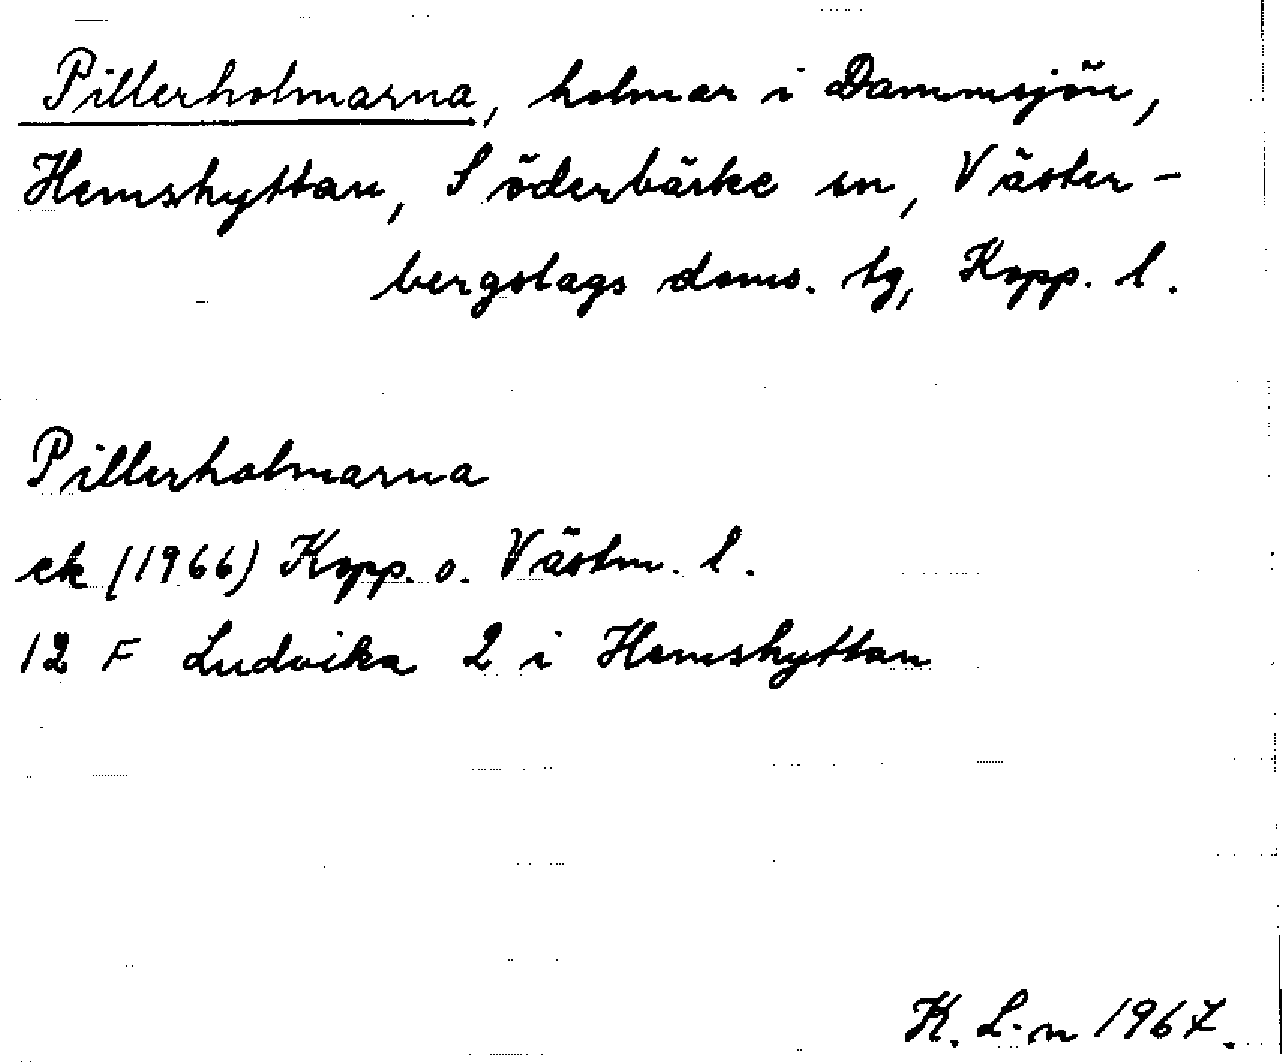 Pillerholmarna, holmar i Dammsjön,
Hemshyttan, Söderbärke sn, Väster-
bergslags doms. tg, Kopp. l.
Pillerholmarna
ek (1966) Kopp. o. Västm. l.
12 F Ludvika 2 i Hemshyttan
K. L-n 1967.